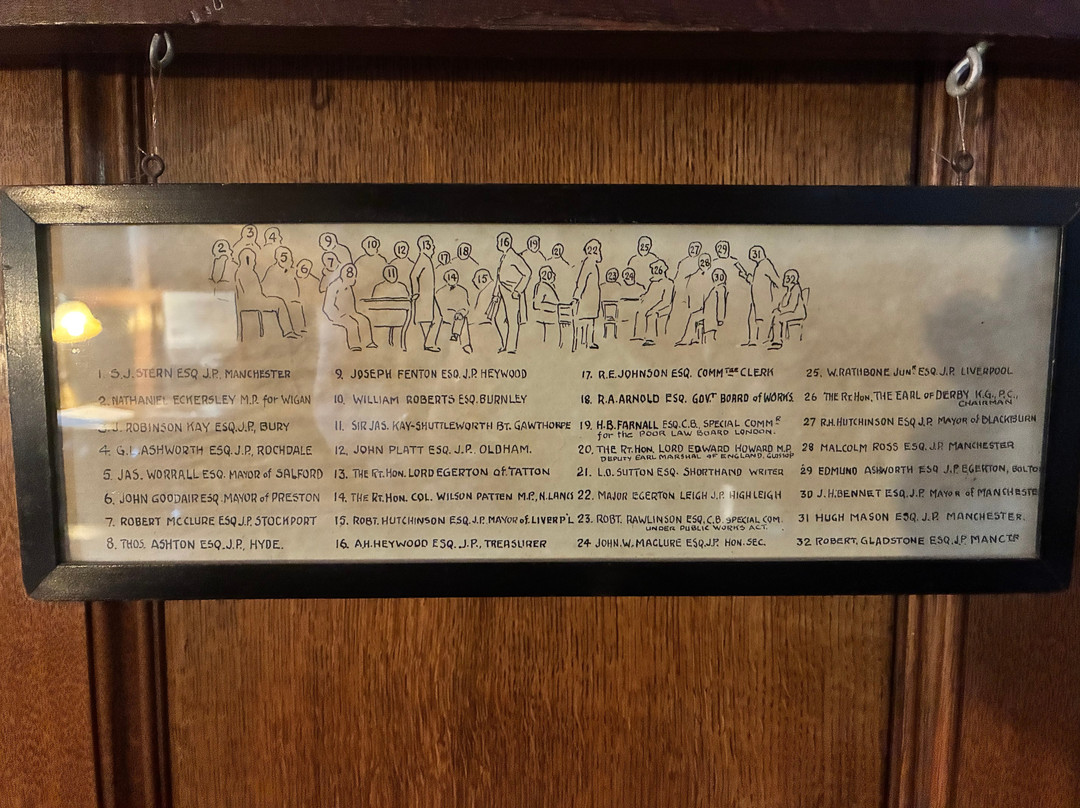 1. S.J. STERN ESQ J.P. MANCHESTER
2. NATHANIEL ECKERSLEY M.P. for WIGAN
3. J. ROBINSON KAY ESQ. J.P., BURY
4. G.L. ASHWORTH ESQ J.P., ROCHDALE
5. JAS. WORRALL ESQ. MAYOR of SALFORD
6. JOHN GOODAIR ESQ. MAYOR of PRESTON
7. ROBERT MCCLURE ESQ. J.P. STOCKPORT
8. THOS. ASHTON ESQ. J.P., HYDE.
9. JOSEPH FENTON ESQ. J.P. HEYWOOD
10. WILLIAM ROBERTS ESQ. BURNLEY
11. SIR JAS. KAY-SHUTTLEWORTH BT. GAWTHORPE
12. JOHN PLATT ESQ. J.P. OLDHAM.
13. THE RT. HON. LORD EGERTON of TATTON
14. THE RT. HON. COL. WILSON PATTEN M.P., N. LANCS
15. ROBT. HUTCHINSON ESQ. J.P. MAYOR of LIVERP'L
16. A.H. HEYWOOD ESQ. J.P., TREASURER
17. R.E. JOHNSON ESQ. COMMTEE CLERK
18. R.A. ARNOLD ESQ. GOVT BOARD of WORKS.
19. H.B. FARNALL ESQ. C.B. SPECIAL COMMR
for the POOR LAW BOARD LONDON.
20. THE RT. HON. LORD EDWARD HOWARD M.P.
DEPUTY EARL MARSHAL OF ENGLAND,
21. L.O. SUTTON ESQ. SHORTHAND WRITER
22. MAJOR EGERTON LEIGH J.P. HIGH LEIGH
23. ROBT. RAWLINSON ESQ. C.B. SPECIAL COM.
UNDER PUBLIC WORKS ACT.
24 JOHN. W. MACLURE ESQ. J.P. HON. SEC.
25. W. RATHBONE JUNR ESQ. J.P. LIVERPOOL
26 THE RT. HON. THE EARL of DERBY K.G., P.C.,
CHAIRMAN
27 R.H. HUTCHINSON ESQ. J.P. MAYOR of BLACKBURN
28 MALCOLM ROSS ESQ. J.P. MANCHESTER
29 EDMUND ASHWORTH ESQ J.P. EGERTON, BOLTO
30 J.H. BENNET ESQ. J.P. MAYOR of MANCHESTE
31 HUGH MASON ESQ. J.P. MANCHESTER.
32 ROBERT. GLADSTONE ESQ. J.P. MANCTR